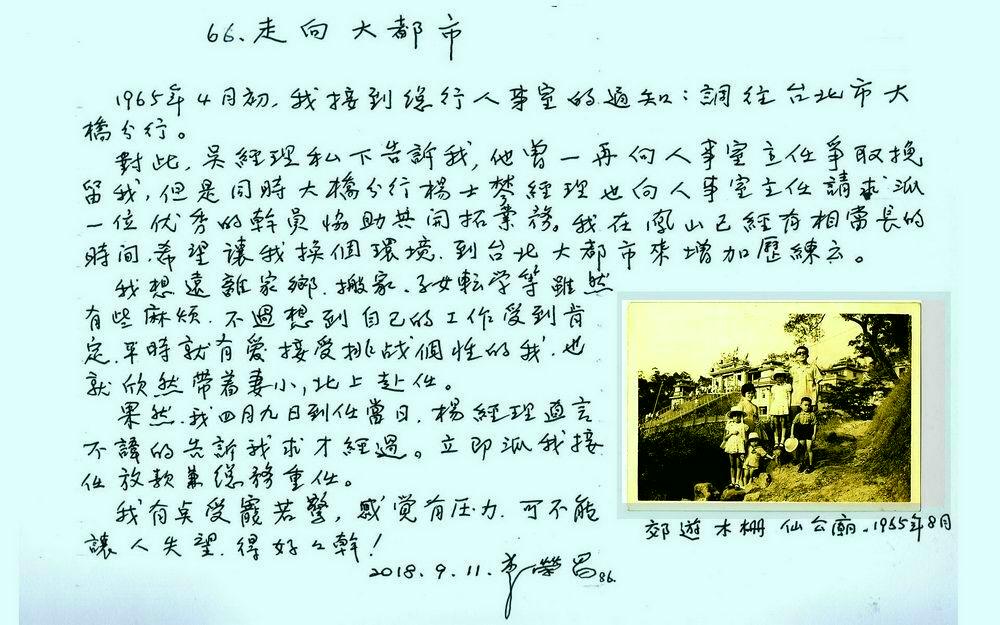 66. 走向大都市
1965年4月初,我接到總行人事室的通知:調往台北市大
橋分行。
對此,吳經理私下告訴我,他曾一再向人事室主任爭取挽
留我,但是同時大橋分行楊士琴經理也向人事室主任請求派
一位优秀的幹員協助共同拓業務。我在鳳山已經有相當長的
時間.希望讓我換個環境.到台北大都市來增加歷練云。
我想遠離家鄉.搬家.子女転学等雖然
有些麻煩.不過想到自己的工作受到肯
定.平時就有愛接受挑战個性的我.也
就欣然帶着妻小,北上赴任。
果然.我四月九日到任當日.楊經理直言
不諱的告訴我求才經過。立即派我接
任放款兼總務重任。
我有点受寵若驚,感觉有压力.可不能
讓人失望.得好好幹!
2018.9.11.李榮昌86.
郊遊 木柵 仙公廟.1965年8月